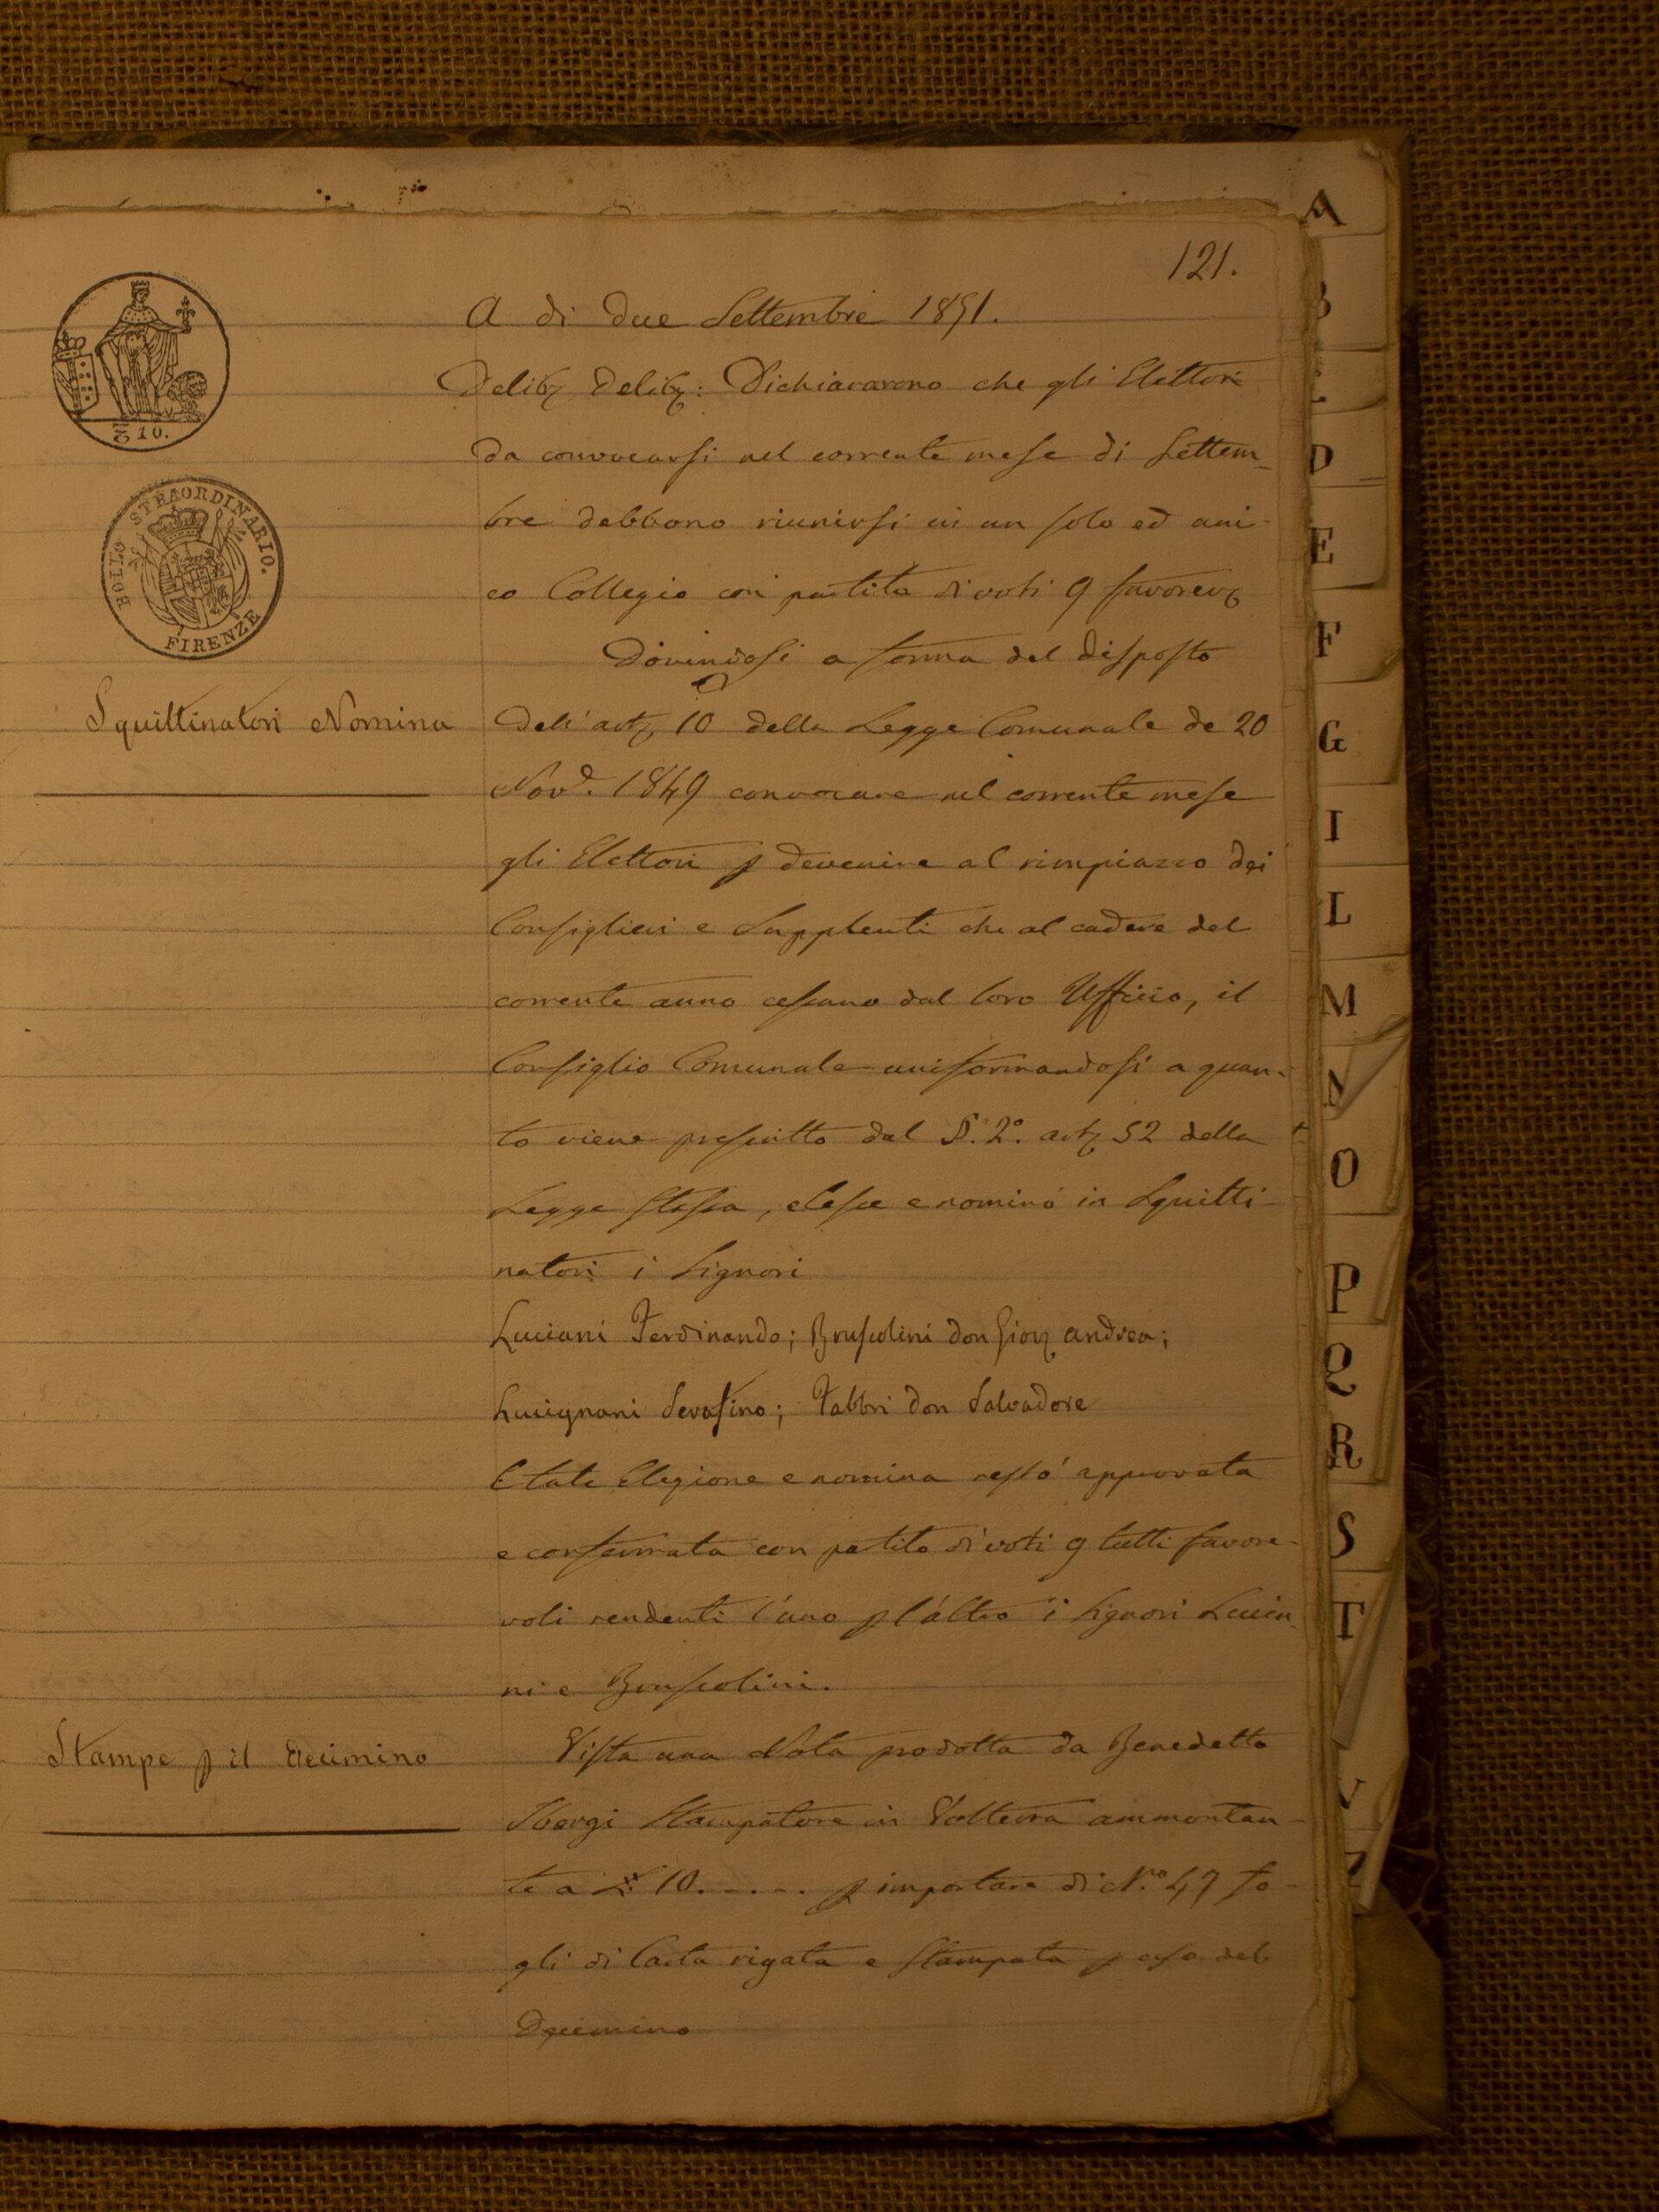 121.
A di due Settembre 1851.
Delib; Delib;: Dichiararono che gli Elettori
da convocarsi nel corrente mese di Settem-
bre debbono riunirsi in un solo ed uni-
co Collegio con partito di voti 9 favorev;
Dovendosi a forma del disposto
Squittinatori Nomina
dell'art; 10 della Legge Comunale de 20
Nov.e 1849 convocare nel corrente mese
gli Elettori p devenire al rimpiazzo dei
Consiglieri e Supplenti che al cadere del
corrente anno cessano dal loro Ufficio, il
Consiglio Comunale uniformandosi a quan-
to viene prescritto dal §. 2°. art; 52 della
Legge stessa, elesse e nominò in Squitti-
natori i Signori
Luciani Ferdinando; Bruscolini don Giov; Andrea;
Lucignani Serafino; Fabbri don Salvadore
E tale Elezione e nomina restò approvata
e confermata con partito di voti 9 tutti favore-
voli rendenti l'uno p l'altro i Signori Lucia-
ni e Bruscolini.
Stampe p il Decimino
Vista una Nota prodotta da Benedetto
Sborgi Stampatore in Volterra ammontan-
te a L: 10.----. p importare di N.ro 47 fo-
gli di Carta rigata e stampata p uso del
Decimino
£ 10.
BOLLO STRAORDINARIO.
FIRENZE
A
B
C
D
E
F
G
I
L
M
N
O
P
Q
R
S
T
V
Z